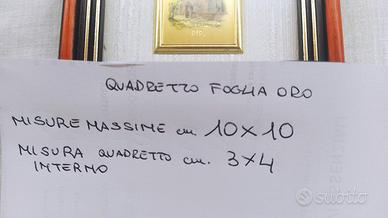 QUADRETTO FOGLIA ORO
MISURE MASSIME cm. 10×10
MISURA QUADRETTO cm. 3×4
INTERNO
subito